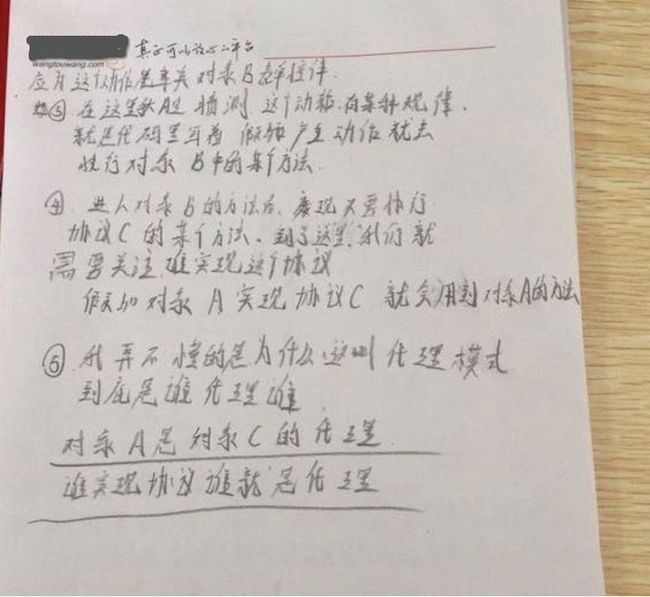 真正可以放心的平台
wangtouwang.com
应有这个动作是来关对象B去掌控伴.
③ 在这里就A是 猜测 这个动作.有某种规律.
就是代码里写着 假如产生动作就去
执行对象B中的某个方法.
④ 进入对象B的方法后,发现又要执行
协议C的某个方法、到了这里,我们就
需要关注,谁实现这个协议
假如对象A实现协议C 就会用到对象A的方法
⑤ 我弄不懂的是为什么,这叫代理模式
到底是谁代理谁
对象A是对象C的代理
谁实现协议谁就是代理